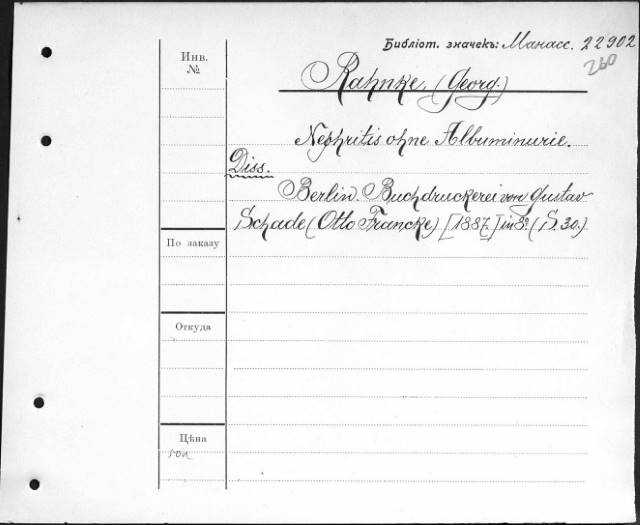 Библіот. значекъ: Манасс. 22902
260
Инв.
№
Rahnke. (Georg.)
Nephritis ohne Albuminurie.
Diss.
Berlin. Buchdruckerei von Gustav
Schade (Otto Francke) [1887.] in 8º. (S. 30.)
По заказу
Откуда
Цѣна